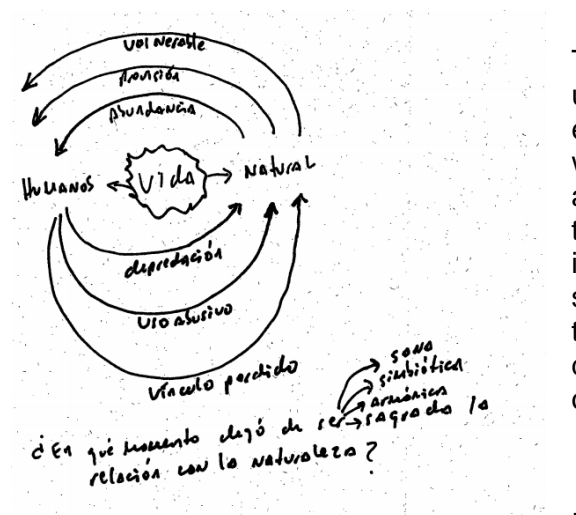 Vulnerable
Provisión
Abundancia
Humanos
Vida
Natural
depredación
Uso Abusivo
Vínculo perdido
sana
simbiótica
armónica
¿En qué momento dejó de ser sagrada la
relación con la Naturaleza?